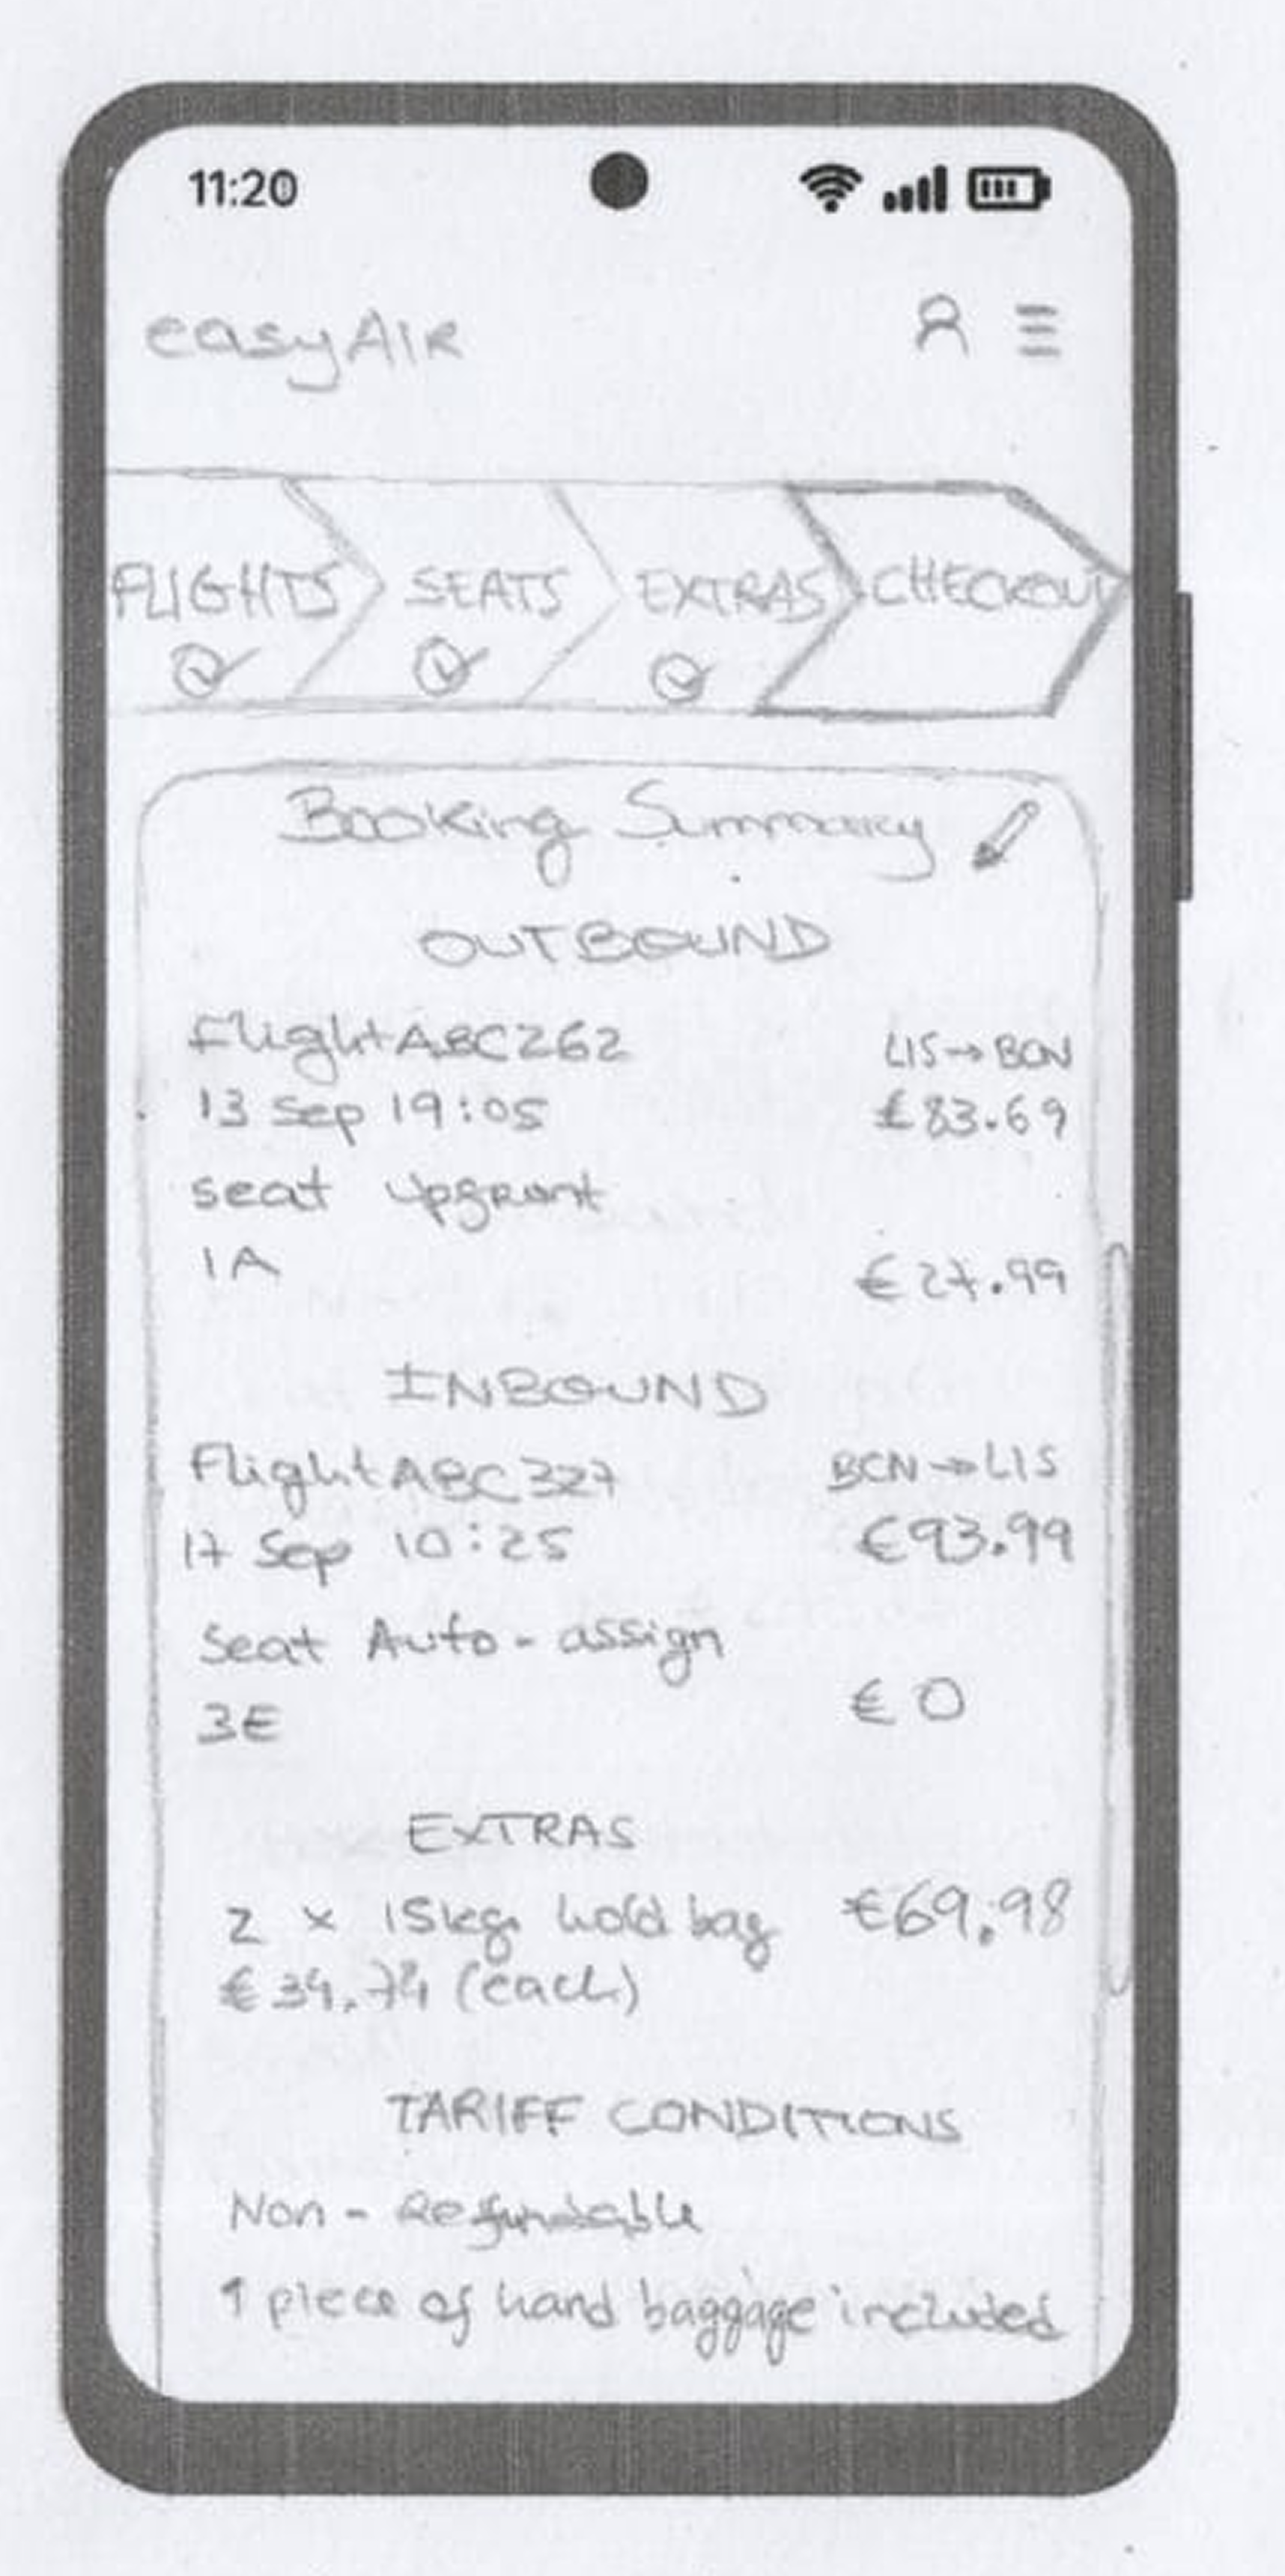 11:20
easyAir
FLIGHTS SEATS EXTRAS CHECKOUT
Booking Summary
OUTBOUND
FlightABC262 LIS→BCN
13 Sep 19:05 €83.69
seat upgrant
1A €27.99
INBOUND
FlightABC327 BCN→LIS
17 Sep 10:25 €93.99
Seat Auto-assign
3E €0
EXTRAS
2 x 15kg. hold bag €69.98
€34.74 (each)
TARIFF CONDITIONS
Non-Refundable
1 piece of hand baggage included